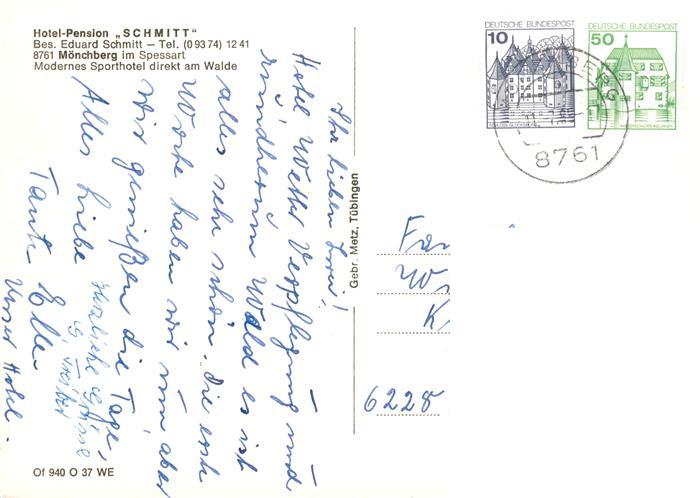 Hotel-Pension „SCHMITT"
Bes. Eduard Schmitt – Tel. (0 93 74) 12 41
8761 Mönchberg im Spessart
Modernes Sporthotel direkt am Walde
DEUTSCHE BUNDESPOST
10
DEUTSCHE BUNDESPOST
50
8761
Ihr lieben Zwei!
Hotel Wetter Verpflegung und
rundherum Wald es ist
alles sehr schön. Die erste
Woche haben wir um, aber
wir genießen die Tage,
Alles Liebe
Tante Ellen
Herzliche Grüße
Unser Hotel.
Gebr. Metz, Tübingen
Fa
W
K
6228
Of 940 O 37 WE